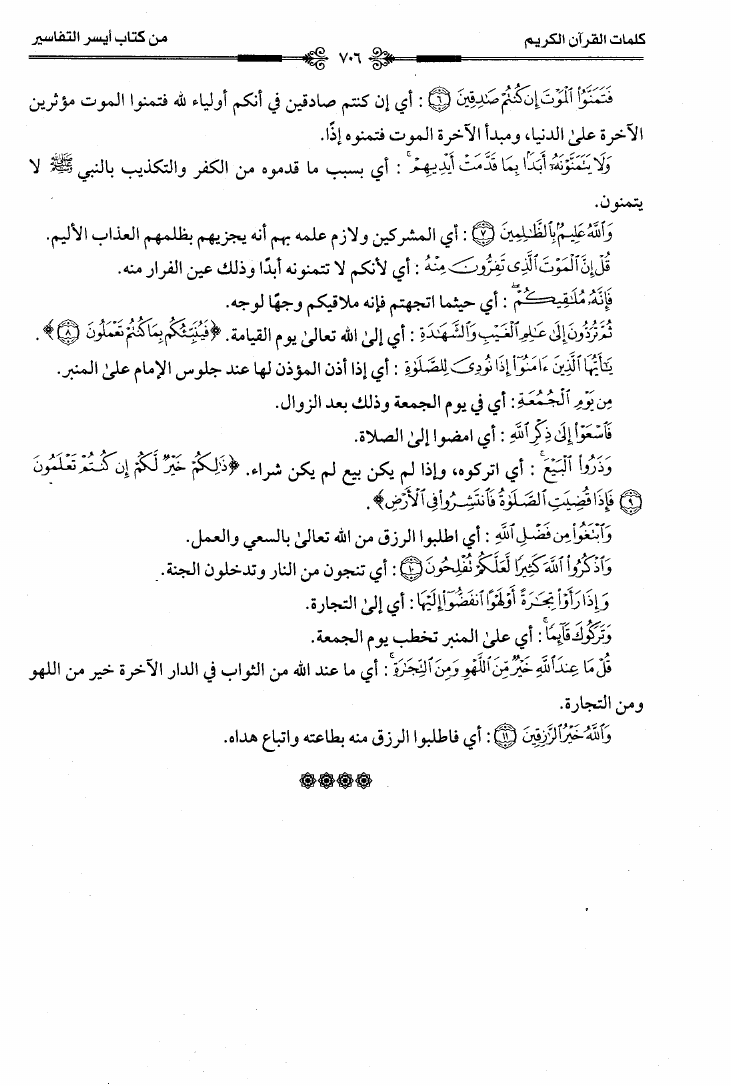 كلمات القرآن الكريم
٧٠٦
من كتاب أيسر التفاسير
فَتَمَنَّوُا۟ ٱلْمَوْتَ إِن كُنتُمْ صَٰدِقِينَ ٦ : أي إن كنتم صادقين في أنكم أولياء لله فتمنوا الموت مؤثرين
الآخرة على الدنيا، ومبدأ الآخرة الموت فتمنوه إذًا.
وَلَا يَتَمَنَّوْنَهُۥٓ أَبَدًۢا بِمَا قَدَّمَتْ أَيْدِيهِمْ ۚ : أي بسبب ما قدموه من الكفر والتكذيب بالنبي ﷺ لا
يتمنون.
وَٱللَّهُ عَلِيمٌۢ بِٱلظَّٰلِمِينَ ٧ : أي المشركين ولازم علمه بهم أنه يجزيهم بظلمهم العذاب الأليم.
قُلْ إِنَّ ٱلْمَوْتَ ٱلَّذِى تَفِرُّونَ مِنْهُ : أي لأنكم لا تتمنونه أبدًا وذلك عين الفرار منه.
فَإِنَّهُۥ مُلَٰقِيكُمْ ۖ : أي حيثما اتجهتم فإنه ملاقيكم وجهًا لوجه.
ثُمَّ تُرَدُّونَ إِلَىٰ عَٰلِمِ ٱلْغَيْبِ وَٱلشَّهَٰدَةِ : أي إلى الله تعالى يوم القيامة. ﴿فَيُنَبِّئُكُم بِمَا كُنتُمْ تَعْمَلُونَ ٨﴾.
يَٰٓأَيُّهَا ٱلَّذِينَ ءَامَنُوٓا۟ إِذَا نُودِىَ لِلصَّلَوٰةِ : أي إذا أذن المؤذن لها عند جلوس الإمام على المنبر.
مِن يَوْمِ ٱلْجُمُعَةِ : أي في يوم الجمعة وذلك بعد الزوال.
فَٱسْعَوْا۟ إِلَىٰ ذِكْرِ ٱللَّهِ : أي امضوا إلى الصلاة.
وَذَرُوا۟ ٱلْبَيْعَ ۚ : أي اتركوه، وإذا لم يكن بيع لم يكن شراء. ﴿ذَٰلِكُمْ خَيْرٌ لَّكُمْ إِن كُنتُمْ تَعْلَمُونَ
٩ فَإِذَا قُضِيَتِ ٱلصَّلَوٰةُ فَٱنتَشِرُوا۟ فِى ٱلْأَرْضِ﴾.
وَٱبْتَغُوا۟ مِن فَضْلِ ٱللَّهِ : أي اطلبوا الرزق من الله تعالى بالسعي والعمل.
وَٱذْكُرُوا۟ ٱللَّهَ كَثِيرًا لَّعَلَّكُمْ تُفْلِحُونَ ١٠ : أي تنجون من النار وتدخلون الجنة.
وَإِذَا رَأَوْا۟ تِجَٰرَةً أَوْ لَهْوًا ٱنفَضُّوٓا۟ إِلَيْهَا : أي إلى التجارة.
وَتَرَكُوكَ قَآئِمًا ۚ : أي على المنبر تخطب يوم الجمعة.
قُلْ مَا عِندَ ٱللَّهِ خَيْرٌ مِّنَ ٱللَّهْوِ وَمِنَ ٱلتِّجَٰرَةِ ۚ : أي ما عند الله من الثواب في الدار الآخرة خير من اللهو
ومن التجارة.
وَٱللَّهُ خَيْرُ ٱلرَّٰزِقِينَ ١١ : أي فاطلبوا الرزق منه بطاعته واتباع هداه.